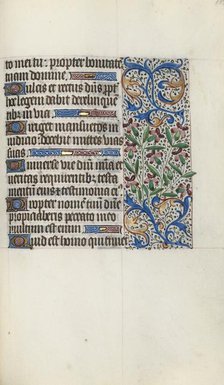 to mei tu: propter bonitate
tuam domine.
Dulcis et rectus dñs: ppt
hec legem dabit delinquēti
bus in via.
Diriget mansuetos in
iudicio: docebit mites vias
suas.
Universe vie dñi mīa et
veritas: requirentibus testa
mentū eius et testimonia ei
Propter nomē tuū dñe
propiciaberis peccato meo
multum est enim.
Quis est homo qui timet